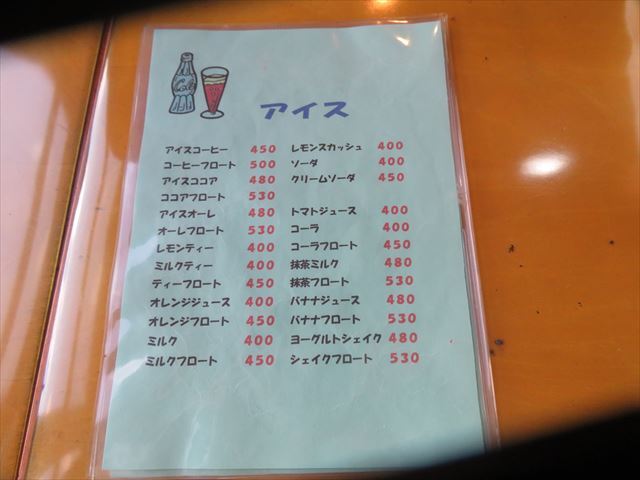 アイス
アイスコーヒー 450
コーヒーフロート 500
アイスココア 480
ココアフロート 530
アイスオーレ 480
オーレフロート 530
レモンティー 400
ミルクティー 400
ティーフロート 450
オレンジジュース 400
オレンジフロート 450
ミルク 400
ミルクフロート 450
レモンスカッシュ 400
ソーダ 400
クリームソーダ 450
トマトジュース 400
コーラ 400
コーラフロート 450
抹茶ミルク 480
抹茶フロート 530
バナナジュース 480
バナナフロート 530
ヨーグルトシェイク 480
シェイクフロート 530